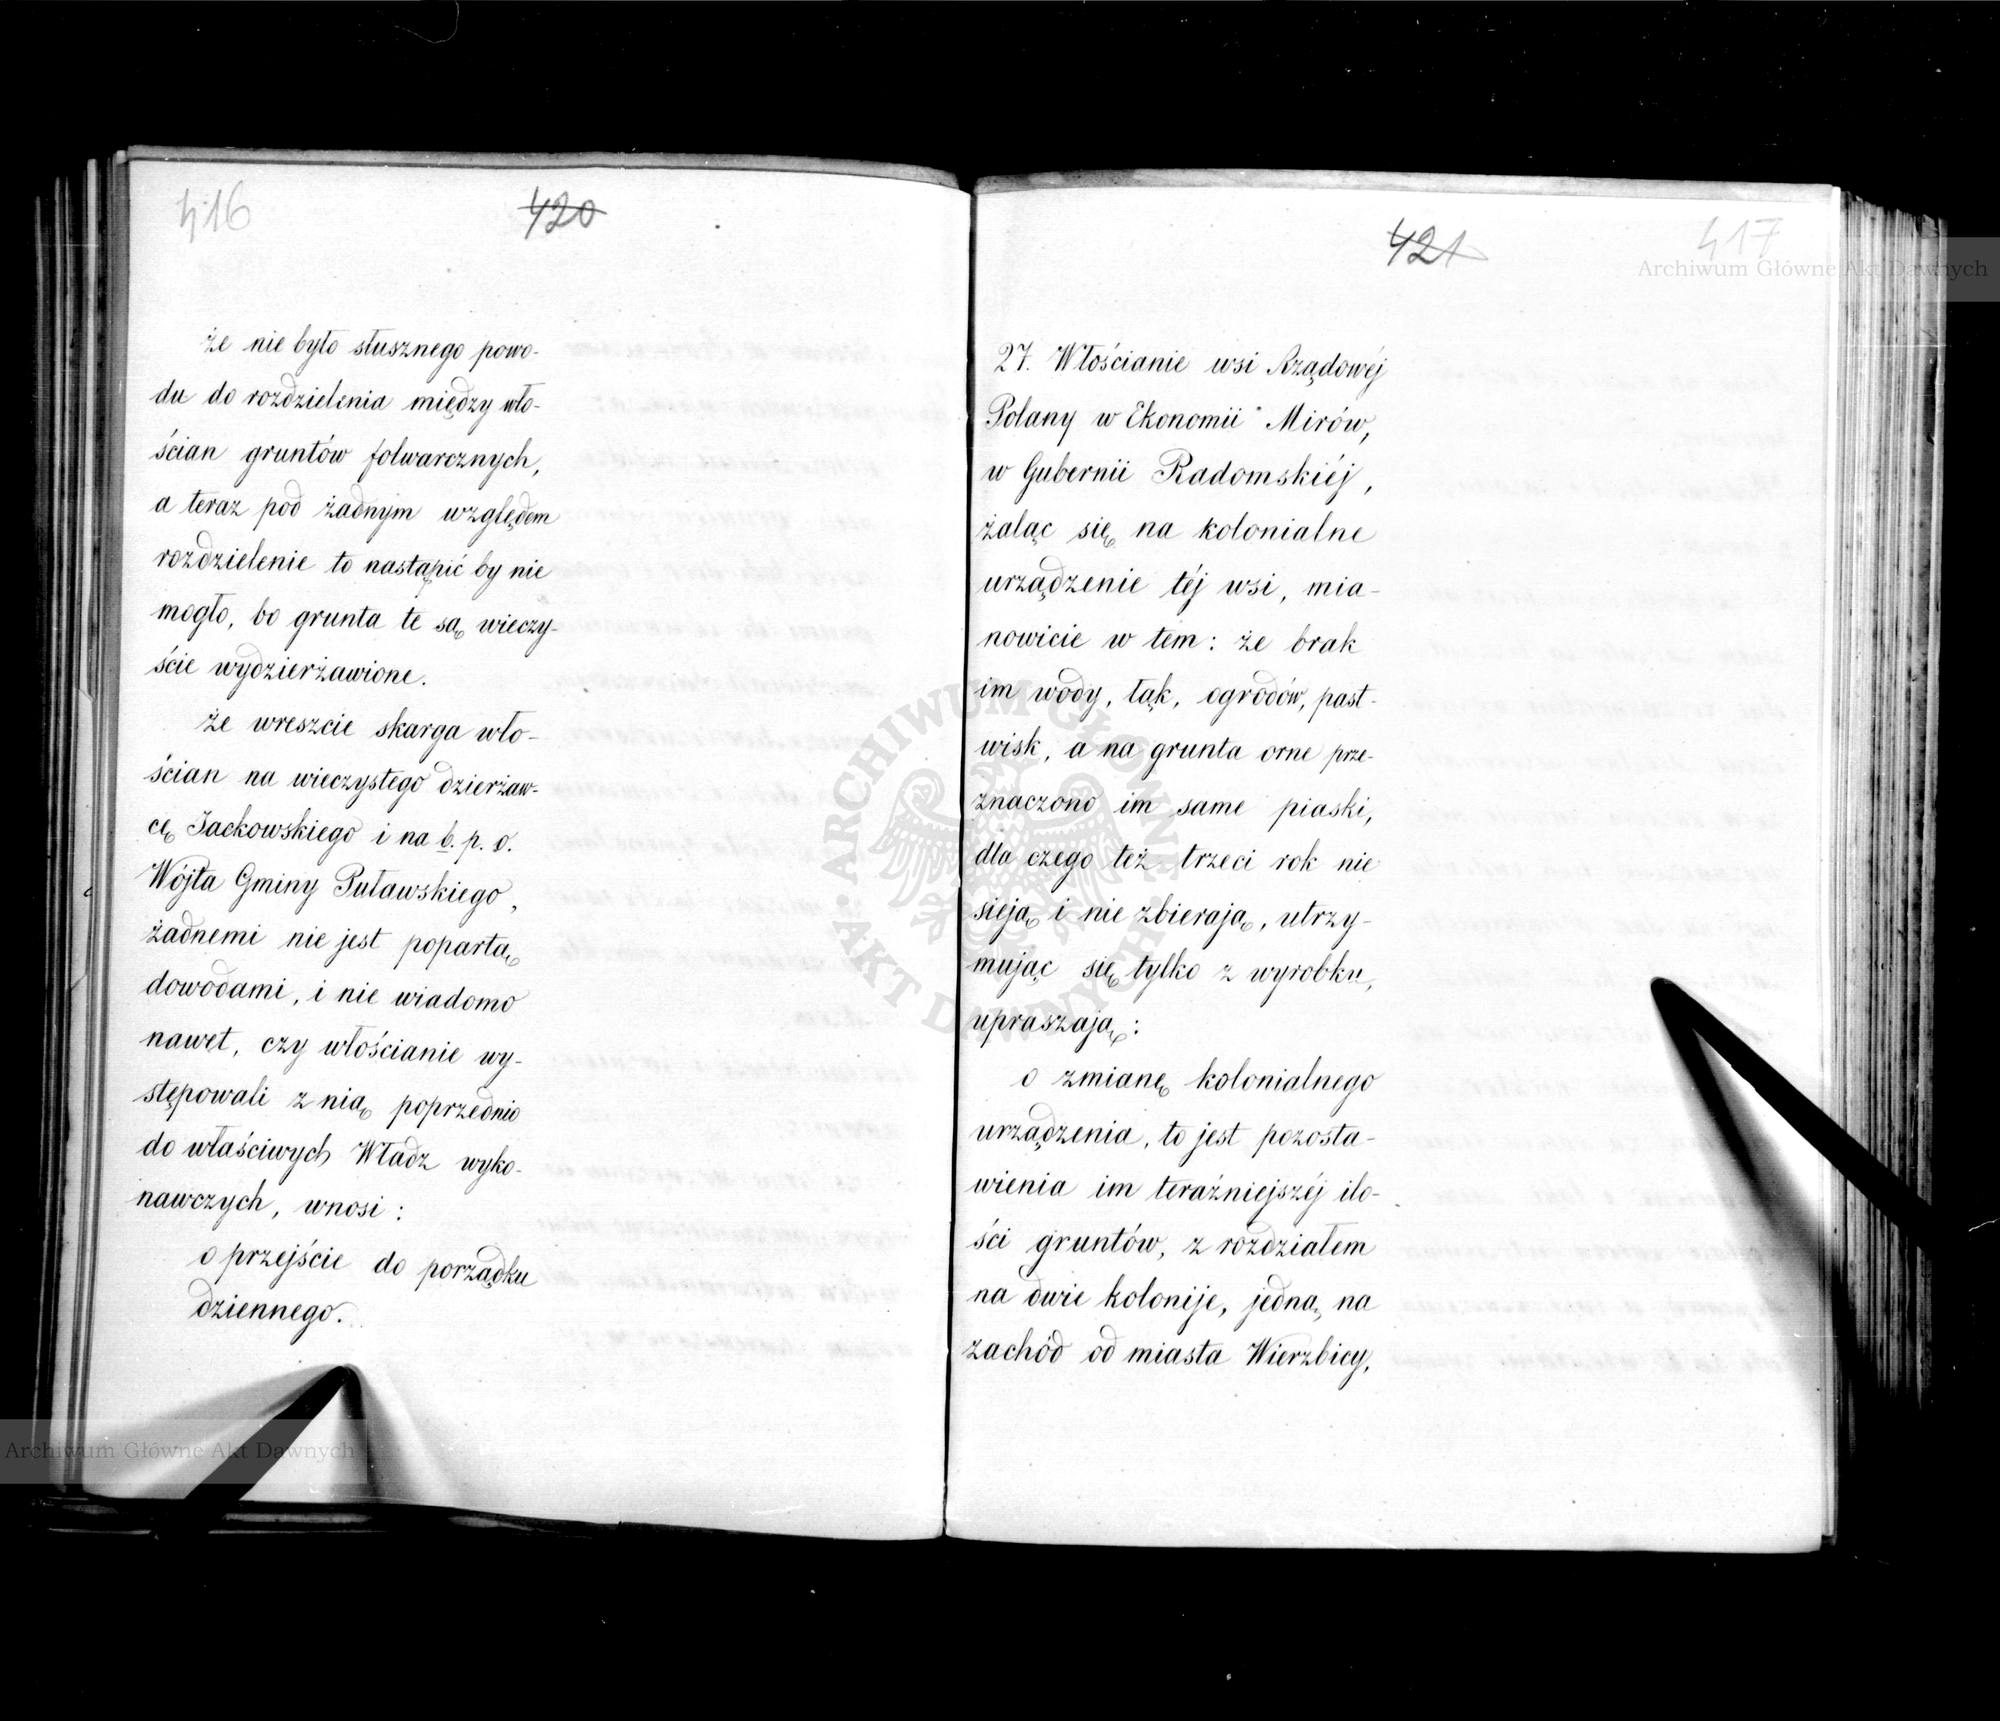 416
420
że nie było słusznego powo-
du do rozdzielenia między wło-
ścian gruntów folwarcznych,
a teraz pod żadnym względem
rozdzielenie to nastąpić by nie
mogło, bo grunta te są wieczy-
ście wydzierżawione.
że wreszcie skarga wło-
ścian na wieczystego dzierżaw-
cę Jackowskiego i na b. p. o.
Wójta Gminy Puławskiego,
żadnemi nie jest popartą
dowodami, i nie wiadomo
nawet, czy włościanie wy-
stępowali z nią poprzednio
do właściwych Władz wyko-
nawczych, wnosi:
o przejście do porządku
dziennego.
421
417
27. Włościanie wsi Rządowéj
Polany w Ekonomii Mirów,
w Gubernii Radomskiéj,
żaląc się na kolonialne
urządzenie téj wsi, mia-
nowicie w tem: że brak
im wody, łąk, ogrodów, past-
wisk, a na grunta orne prze-
znaczono im same piaski,
dla czego też trzeci rok nie
sieją i nie zbierają, utrzy-
mując się tylko z wyrobku,
upraszają:
o zmianę kolonialnego
urządzenia, to jest pozosta-
wienia im teraźniejszéj ilo-
ści gruntów, z rozdziałem
na dwie kolonije, jedną na
zachód od miasta Wierzbicy,
Archiwum Główne Akt Dawnych
ARCHIWUM GŁÓWNE AKT DAWNYCH
Archiwum Główne Akt Dawnych